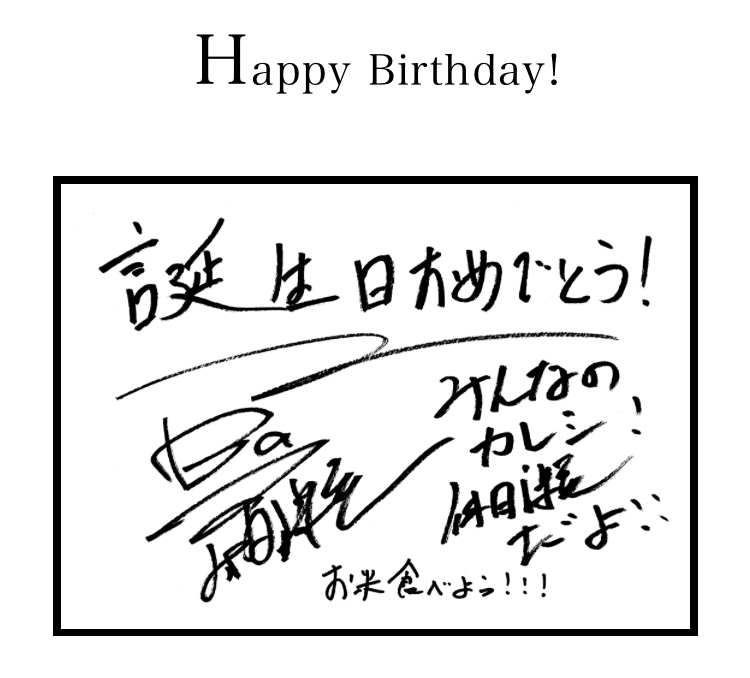 Happy Birthday!
誕生日おめでとう!
みんなの
カレシ!
だよ!!
お米食べよう!!!